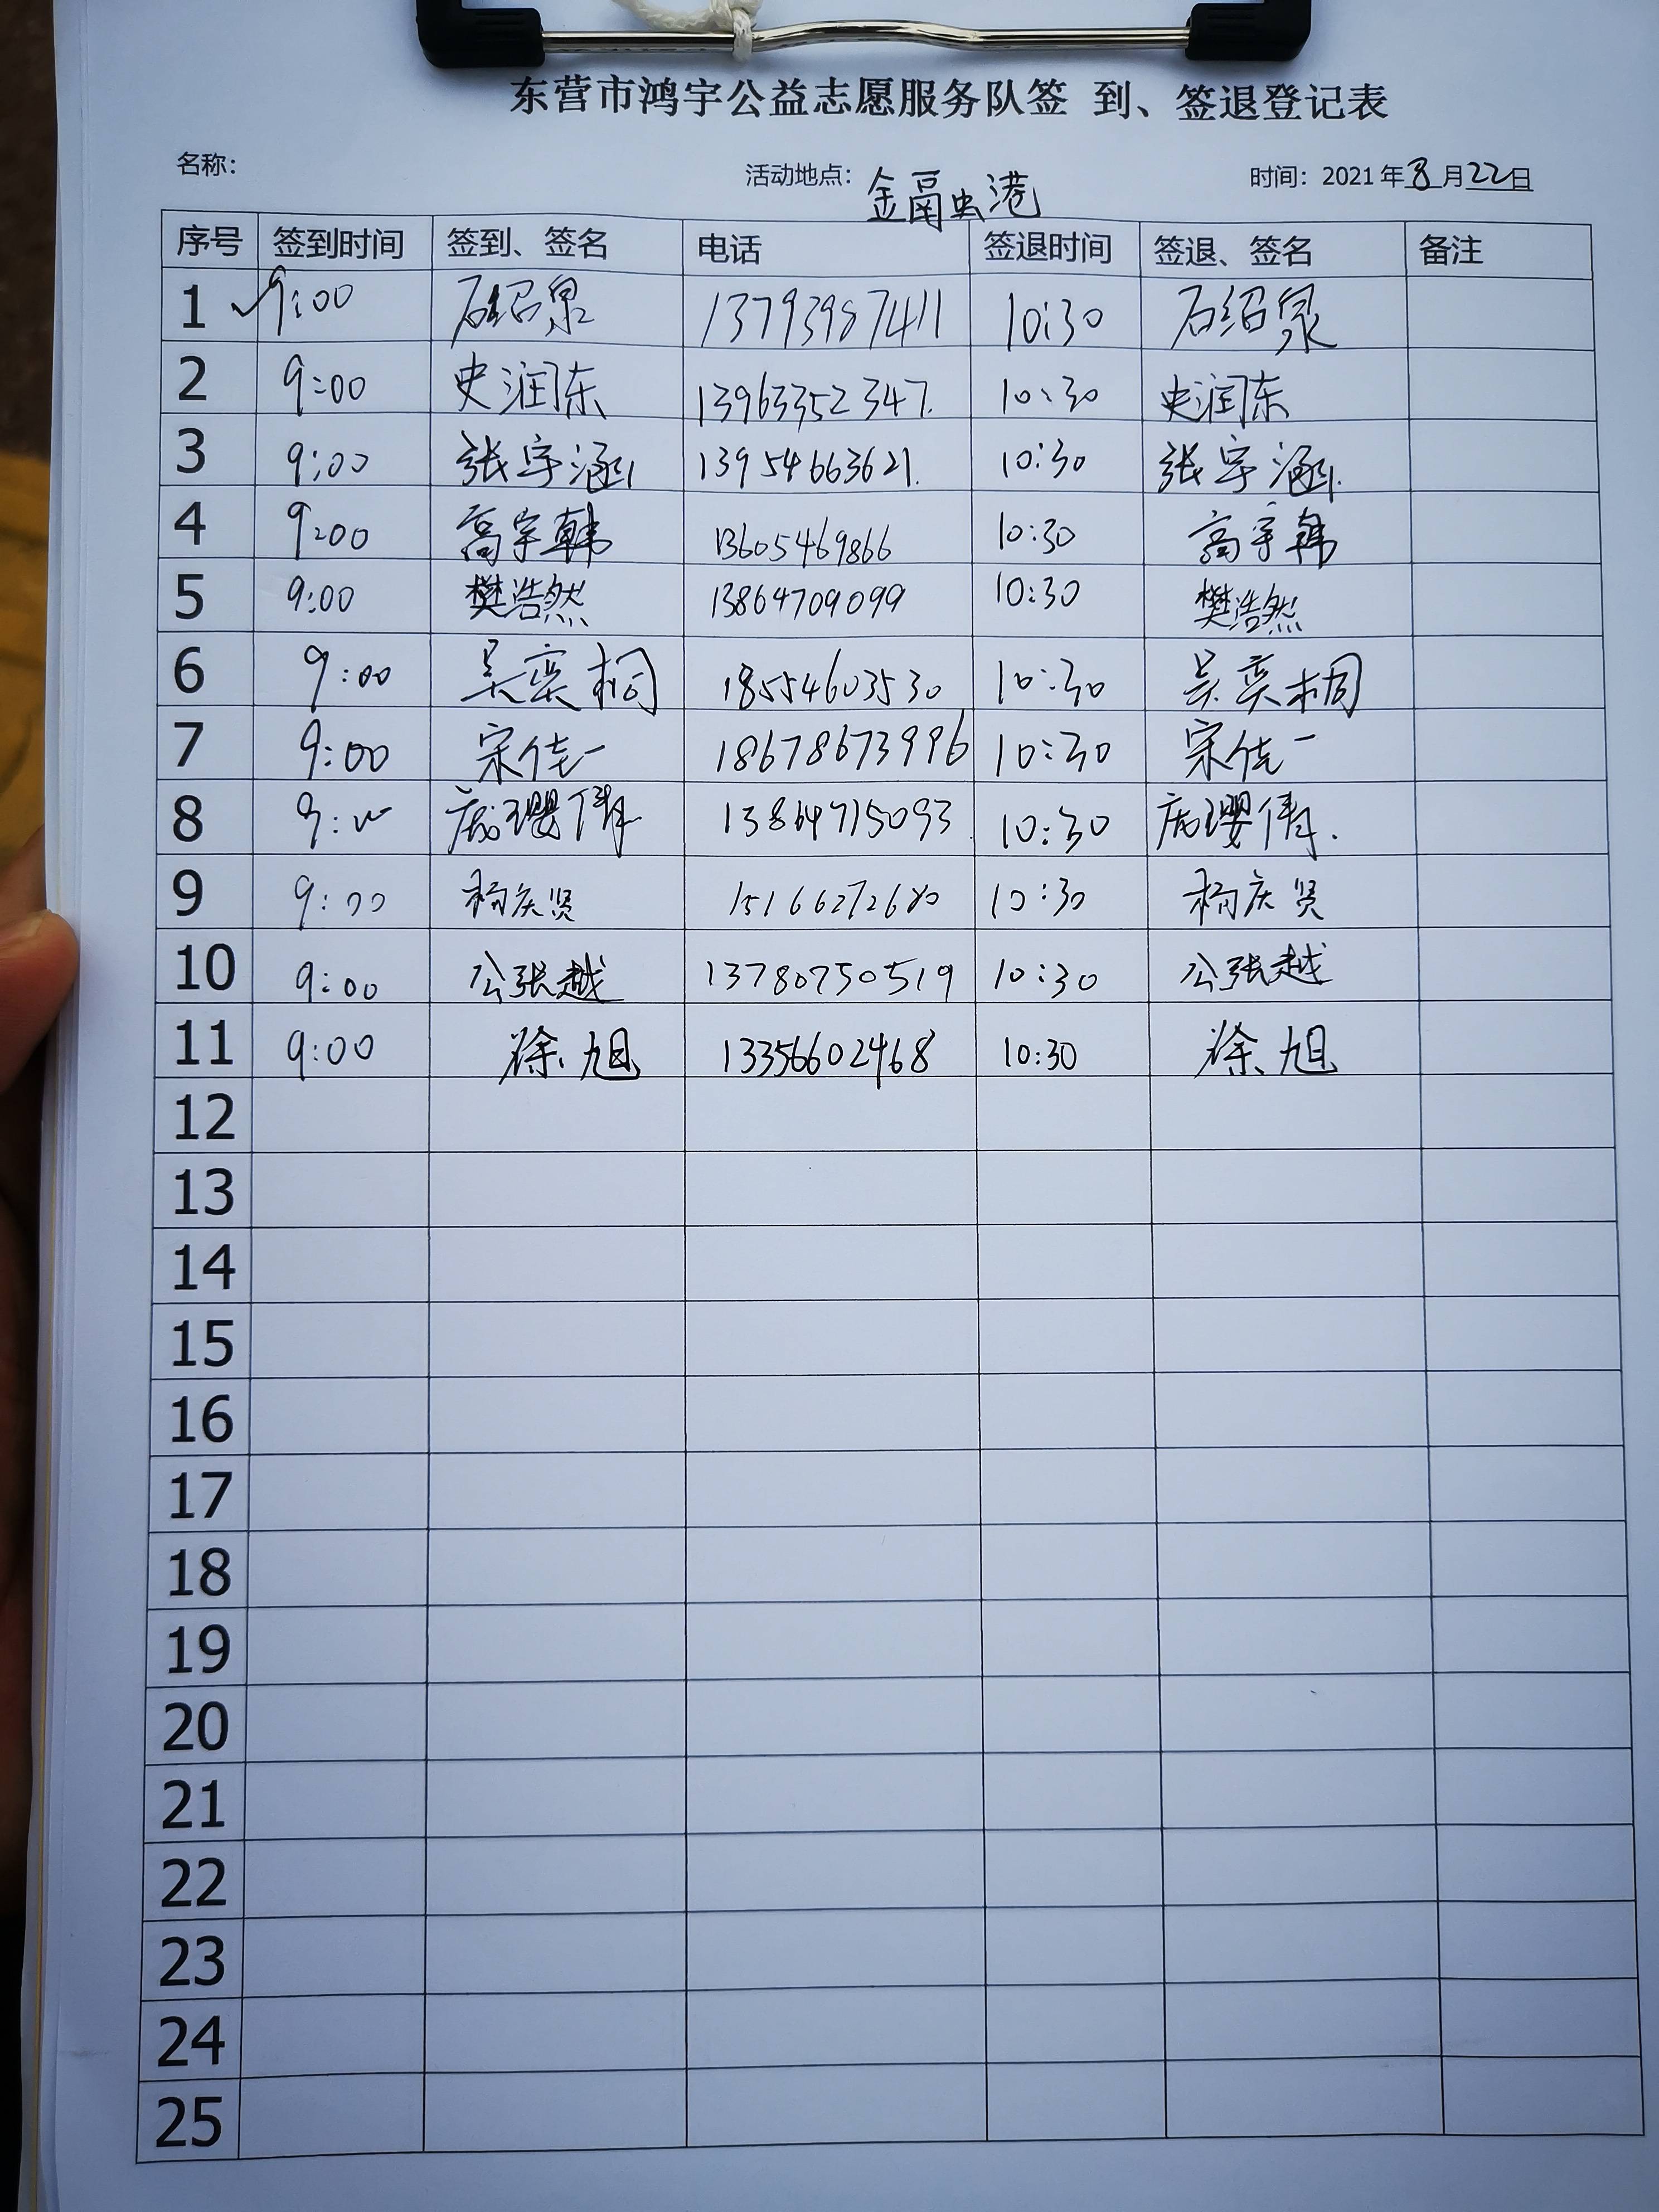 东营市鸿宇公益志愿服务队签 到、签退登记表
名称： 活动地点：金鬲虫港 时间：2021年8月22日
序号 签到时间 签到、签名 电话 签退时间 签退、签名 备注
1 9:00 石绍泉 13793987411 10:30 石绍泉
2 9:00 史润东 13963352347. 10:30 史润东
3 9:00 张宇涵 13954663621. 10:30 张宇涵.
4 9:00 高宇韩 13605469866 10:30 高宇韩
5 9:00 樊浩然 13864709099 10:30 樊浩然
6 9:00 吴奕桐 18554603530 10:30 吴奕桐
7 9:00 宋佳一 18678673996 10:30 宋佳一
8 9: 庞璎倩 13864715093. 10:30 庞璎倩.
9 9:00 杨庆贤 15166272680 10:30 杨庆贤
10 9:00 公张越 13780750519 10:30 公张越
11 9:00 徐旭 13356602468 10:30 徐旭
12
13
14
15
16
17
18
19
20
21
22
23
24
25